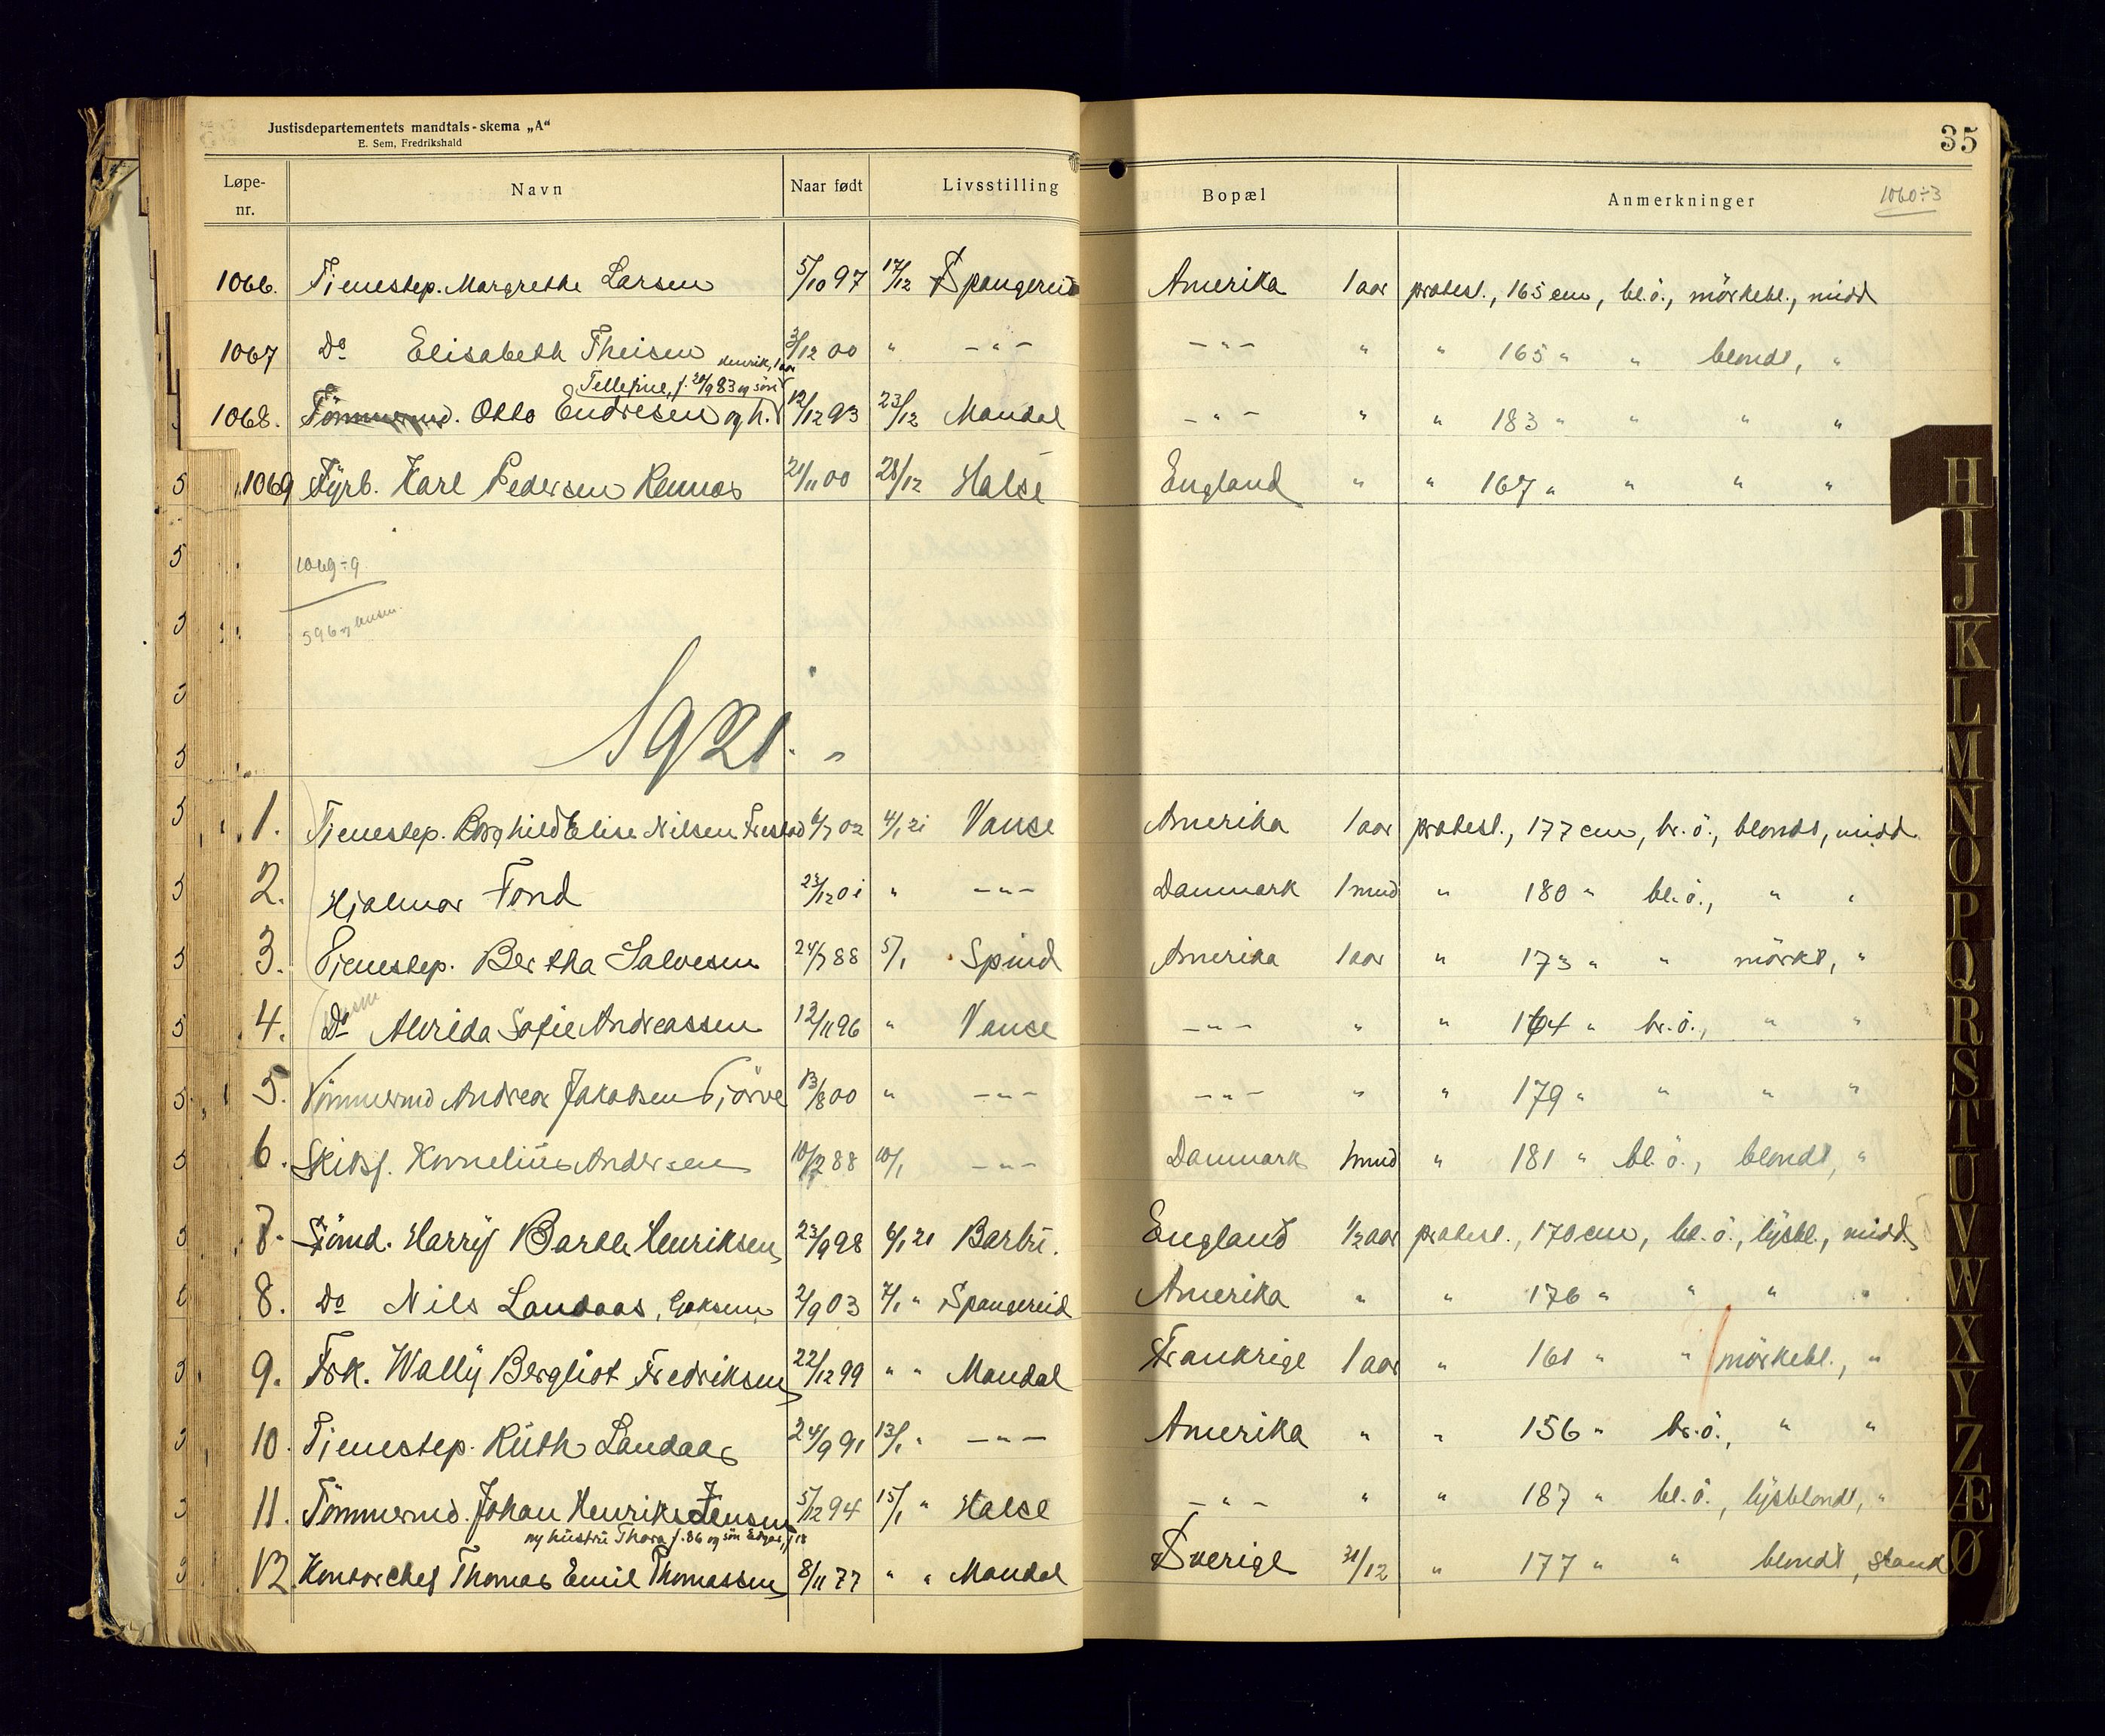 Justisdepartementets mandtals-skema „A“
E. Sem, Fredrikshald
35
Løpe-nr. Navn Naar født Livsstilling Bopæl Anmerkninger 1060÷3
1066. Tienestep. Margrethe Larsen 5/10 97 17/12 Spangereid Amerika 1 aar protest., 165 cm, bl.ö., mörkebl., midd
1067 Do Elisabeth Theisen 3/12 00 " -"- -"- " " 165 " " blondt, "
Henrik, 1 aar
Tellefine, f. 20/9 83 og sön
1068. Tömmermd. Otto Endresen og h. 12/12 93 23/12 Mandal -"- " " 183 " " " "
1069 Fyrb. Karl Pedersen Rennas 21/11 00 28/12 Halse England " " 167 " " " "
1069÷9
596
1921.
1. Tienestep. Borghild Elise Nilsen Frestad 6/7 02 4/1 21 Vanse Amerika 1 aar protest., 177 cm, br.ö., blondt, midd.
2. Hjalmar Tond 23/12 01 " -"- Danmark 1 mnd " 180 " bl.ö., " "
3. Tienestep. Bertha Salvesen 24/7 88 5/1 Spind Amerika 1 aar " 173 " " mörkt, "
4. Do Alvilda Sofie Andreassen 12/11 96 " Vanse -"- " " 164 " br.ö., " "
5. Tömmermd Andreas Jakobsen Tjörve 13/8 00 " -"- -"- " " 179 " " " "
6. Skibsf. Kornelius Andersen 10/7 88 10/1 -"- Danmark 1 mnd " 181 " bl.ö., blondt, "
7. Sjömd. Harry Barth Henriksen 23/9 98 6/1 21 Barbu. England 1/2 aar protest., 170 cm, bl.ö., lysbl., midd.
8. Do Nils Landaas, Gjaksen 2/9 03 7/1 " Spangereid Amerika " " 176 " " " "
9. Frk. Wally Bergliot Fredriksen 22/12 99 " " Mandal Frankrige 1 aar " 161 " " mörkebl., "
10. Tienestep. Ruth Landaas 24/9 91 13/1 " -"- Amerika " " 156 " br.ö., " "
11. Tömmermd. Johan Henrik Jensen 5/12 94 15/1 " Halse -"- " " 187 " bl.ö., lysblondt, "
og hustru Thora f. 86 og sön Edgar, f. 18
12. Kontorchef Thomas Emil Thomassen 8/11 77 " " Mandal Sverige 31/12 " 177 " " blondt, stand
H
I
J
K
L
M
N
O
P
Q
R
S
T
U
V
W
X
Y
Z
Æ
Ø